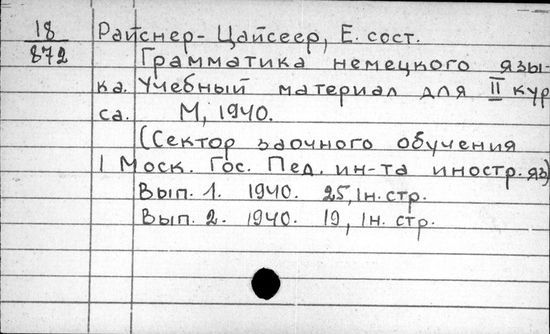 18
872
Райснер-Цайсеер, Е. сост.
Грамматика немецкого язы-
ка. Учебный материал для II кур
са. М., 1940.
(Сектор заочного обучения
I Моск. Гос. Пед. ин-та иностр. яз)
Вып. 1. 1940. 25, 1н. стр.
Вып. 2. 1940. 19, 1н. стр.